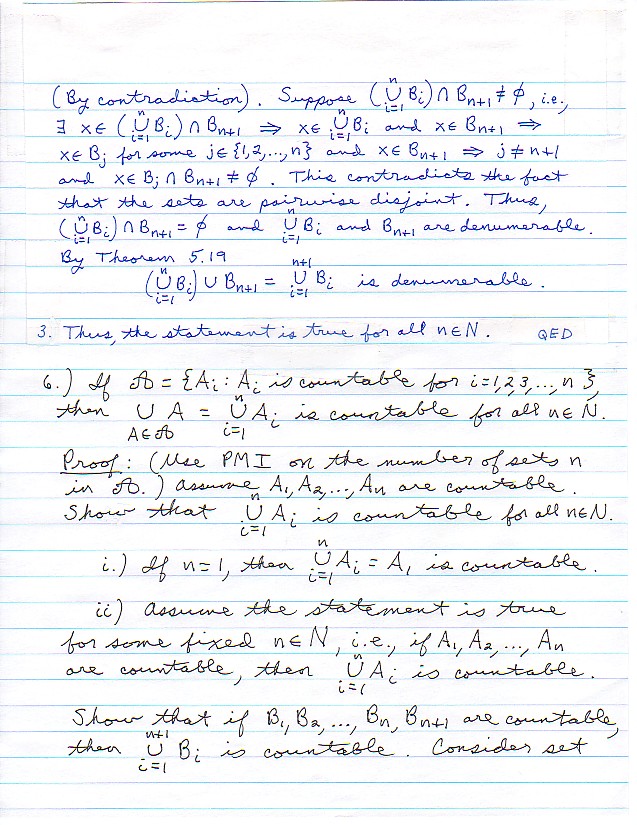 (By contradiction). Suppose (⋃ⁿᵢ₌₁ Bᵢ) ∩ Bₙ₊₁ ≠ ∅, i.e.,
∃ x ∈ (⋃ⁿᵢ₌₁ Bᵢ) ∩ Bₙ₊₁ ⇒ x ∈ ⋃ⁿᵢ₌₁ Bᵢ and x ∈ Bₙ₊₁ ⇒
x ∈ Bⱼ for some j ∈ {1,2,...,n} and x ∈ Bₙ₊₁ ⇒ j ≠ n+1
and x ∈ Bⱼ ∩ Bₙ₊₁ ≠ ∅. This contradicts the fact
that the sets are pairwise disjoint. Thus,
(⋃ⁿᵢ₌₁ Bᵢ) ∩ Bₙ₊₁ = ∅ and ⋃ⁿᵢ₌₁ Bᵢ and Bₙ₊₁ are denumerable.
By Theorem 5.19
(⋃ⁿᵢ₌₁ Bᵢ) ∪ Bₙ₊₁ = ⋃ⁿ⁺¹ᵢ₌₁ Bᵢ is denumerable.
3. Thus, the statement is true for all n ∈ N. QED
6.) If 𝒜 = {Aᵢ : Aᵢ is countable for i=1,2,3,...,n},
then ⋃ A∈𝒜 A = ⋃ⁿᵢ₌₁ Aᵢ is countable for all n ∈ N.
Proof: (Use PMI on the number of sets n
in 𝒜.) Assume A₁, A₂, ..., Aₙ are countable.
Show that ⋃ⁿᵢ₌₁ Aᵢ is countable for all n ∈ N.
i.) If n=1, then ⋃ⁿᵢ₌₁ Aᵢ = A₁ is countable.
ii) Assume the statement is true
for some fixed n ∈ N, i.e., if A₁, A₂, ..., Aₙ
are countable, then ⋃ⁿᵢ₌₁ Aᵢ is countable.
Show that if B₁, B₂, ..., Bₙ, Bₙ₊₁ are countable,
then ⋃ⁿ⁺¹ᵢ₌₁ Bᵢ is countable. Consider set